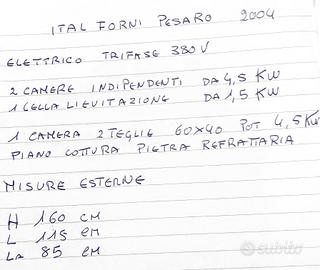 ITAL FORNI PESARO 2004
ELETTRICO TRIFASE 380V
2 CAMERE INDIPENDENTI DA 4,5 KW
1 CELLA LIEVITAZIONE DA 1,5 KW
1 CAMERA 2 TEGLIE 60X40 POT 4,5 KW
PIANO COTTURA PIETRA REFRATTARIA
MISURE ESTERNE
H 160 CM
L 115 CM
LA 85 CM
subito